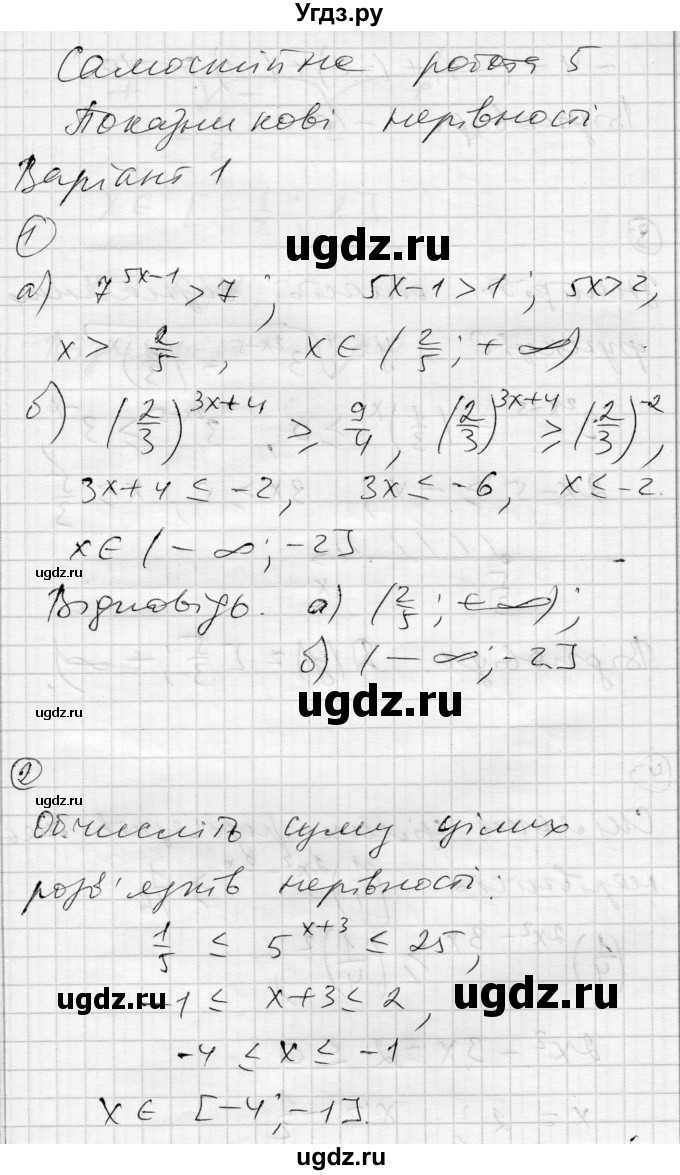 Угдз.ру
Самостійна робота 5
Показникові нерівності
Варіант 1
1
ugdz.ru
а) 7^(5x-1) > 7; 5x-1 > 1; 5x > 2,
x > 2/5, x ∈ (2/5; +∞)
б) (2/3)^(3x+4) ≥ 9/4, (2/3)^(3x+4) ≥ (2/3)^(-2),
3x+4 ≤ -2, 3x ≤ -6, x ≤ -2.
x ∈ (-∞; -2]
ugdz.ru
Відповідь. а) (2/5; +∞);
б) (-∞; -2]
ugdz.ru
ugdz.ru
2
ugdz.ru
Обчисліть суму цілих
розв'язків нерівності:
1/5 ≤ 5^(x+3) ≤ 25,
ugdz.ru
-1 ≤ x+3 ≤ 2,
ugdz.ru
-4 ≤ x ≤ -1
x ∈ [-4; -1].
ugdz.ru